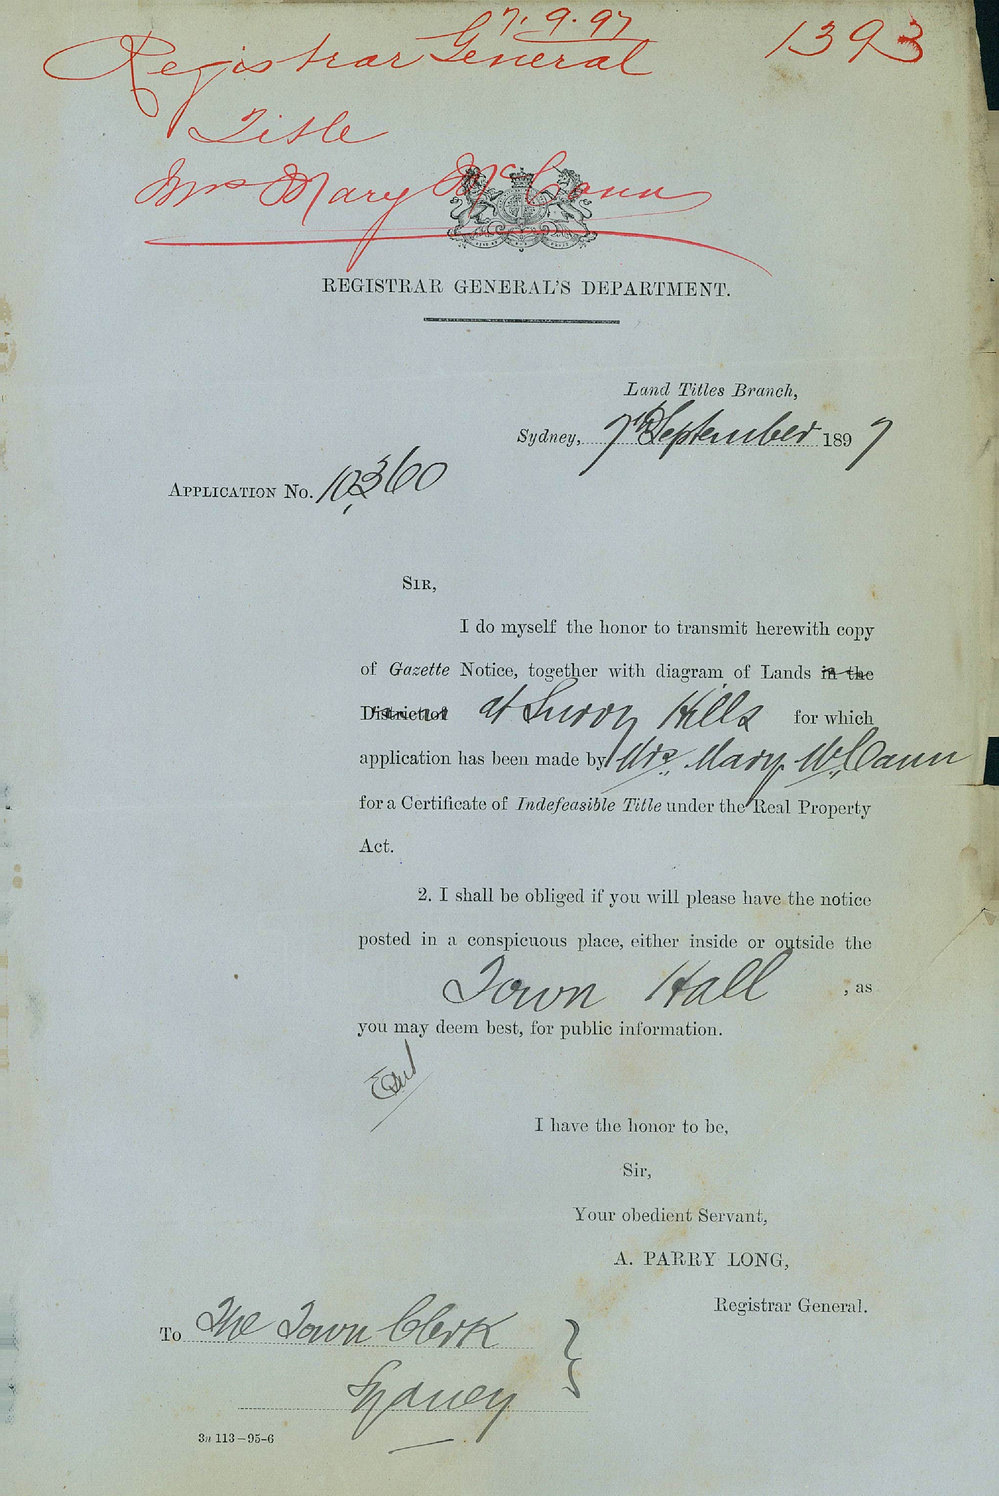 7.9.97
1393
Registrar General
Title
Mrs Mary McCann
REGISTRAR GENERAL'S DEPARTMENT.
Land Titles Branch,
Sydney, 7th September 1897
APPLICATION No. 10,360
SIR,
I do myself the honor to transmit herewith copy
of Gazette Notice, together with diagram of Lands in the
District of at Surry Hills for which
application has been made by Mrs. Mary McCann
for a Certificate of Indefeasible Title under the Real Property
Act.
2. I shall be obliged if you will please have the notice
posted in a conspicuous place, either inside or outside the
Town Hall, as
you may deem best, for public information.
I have the honor to be,
Sir,
Your obedient Servant,
A. PARRY LONG,
Registrar General.
To The Town Clerk
Sydney
3n 113–95–6